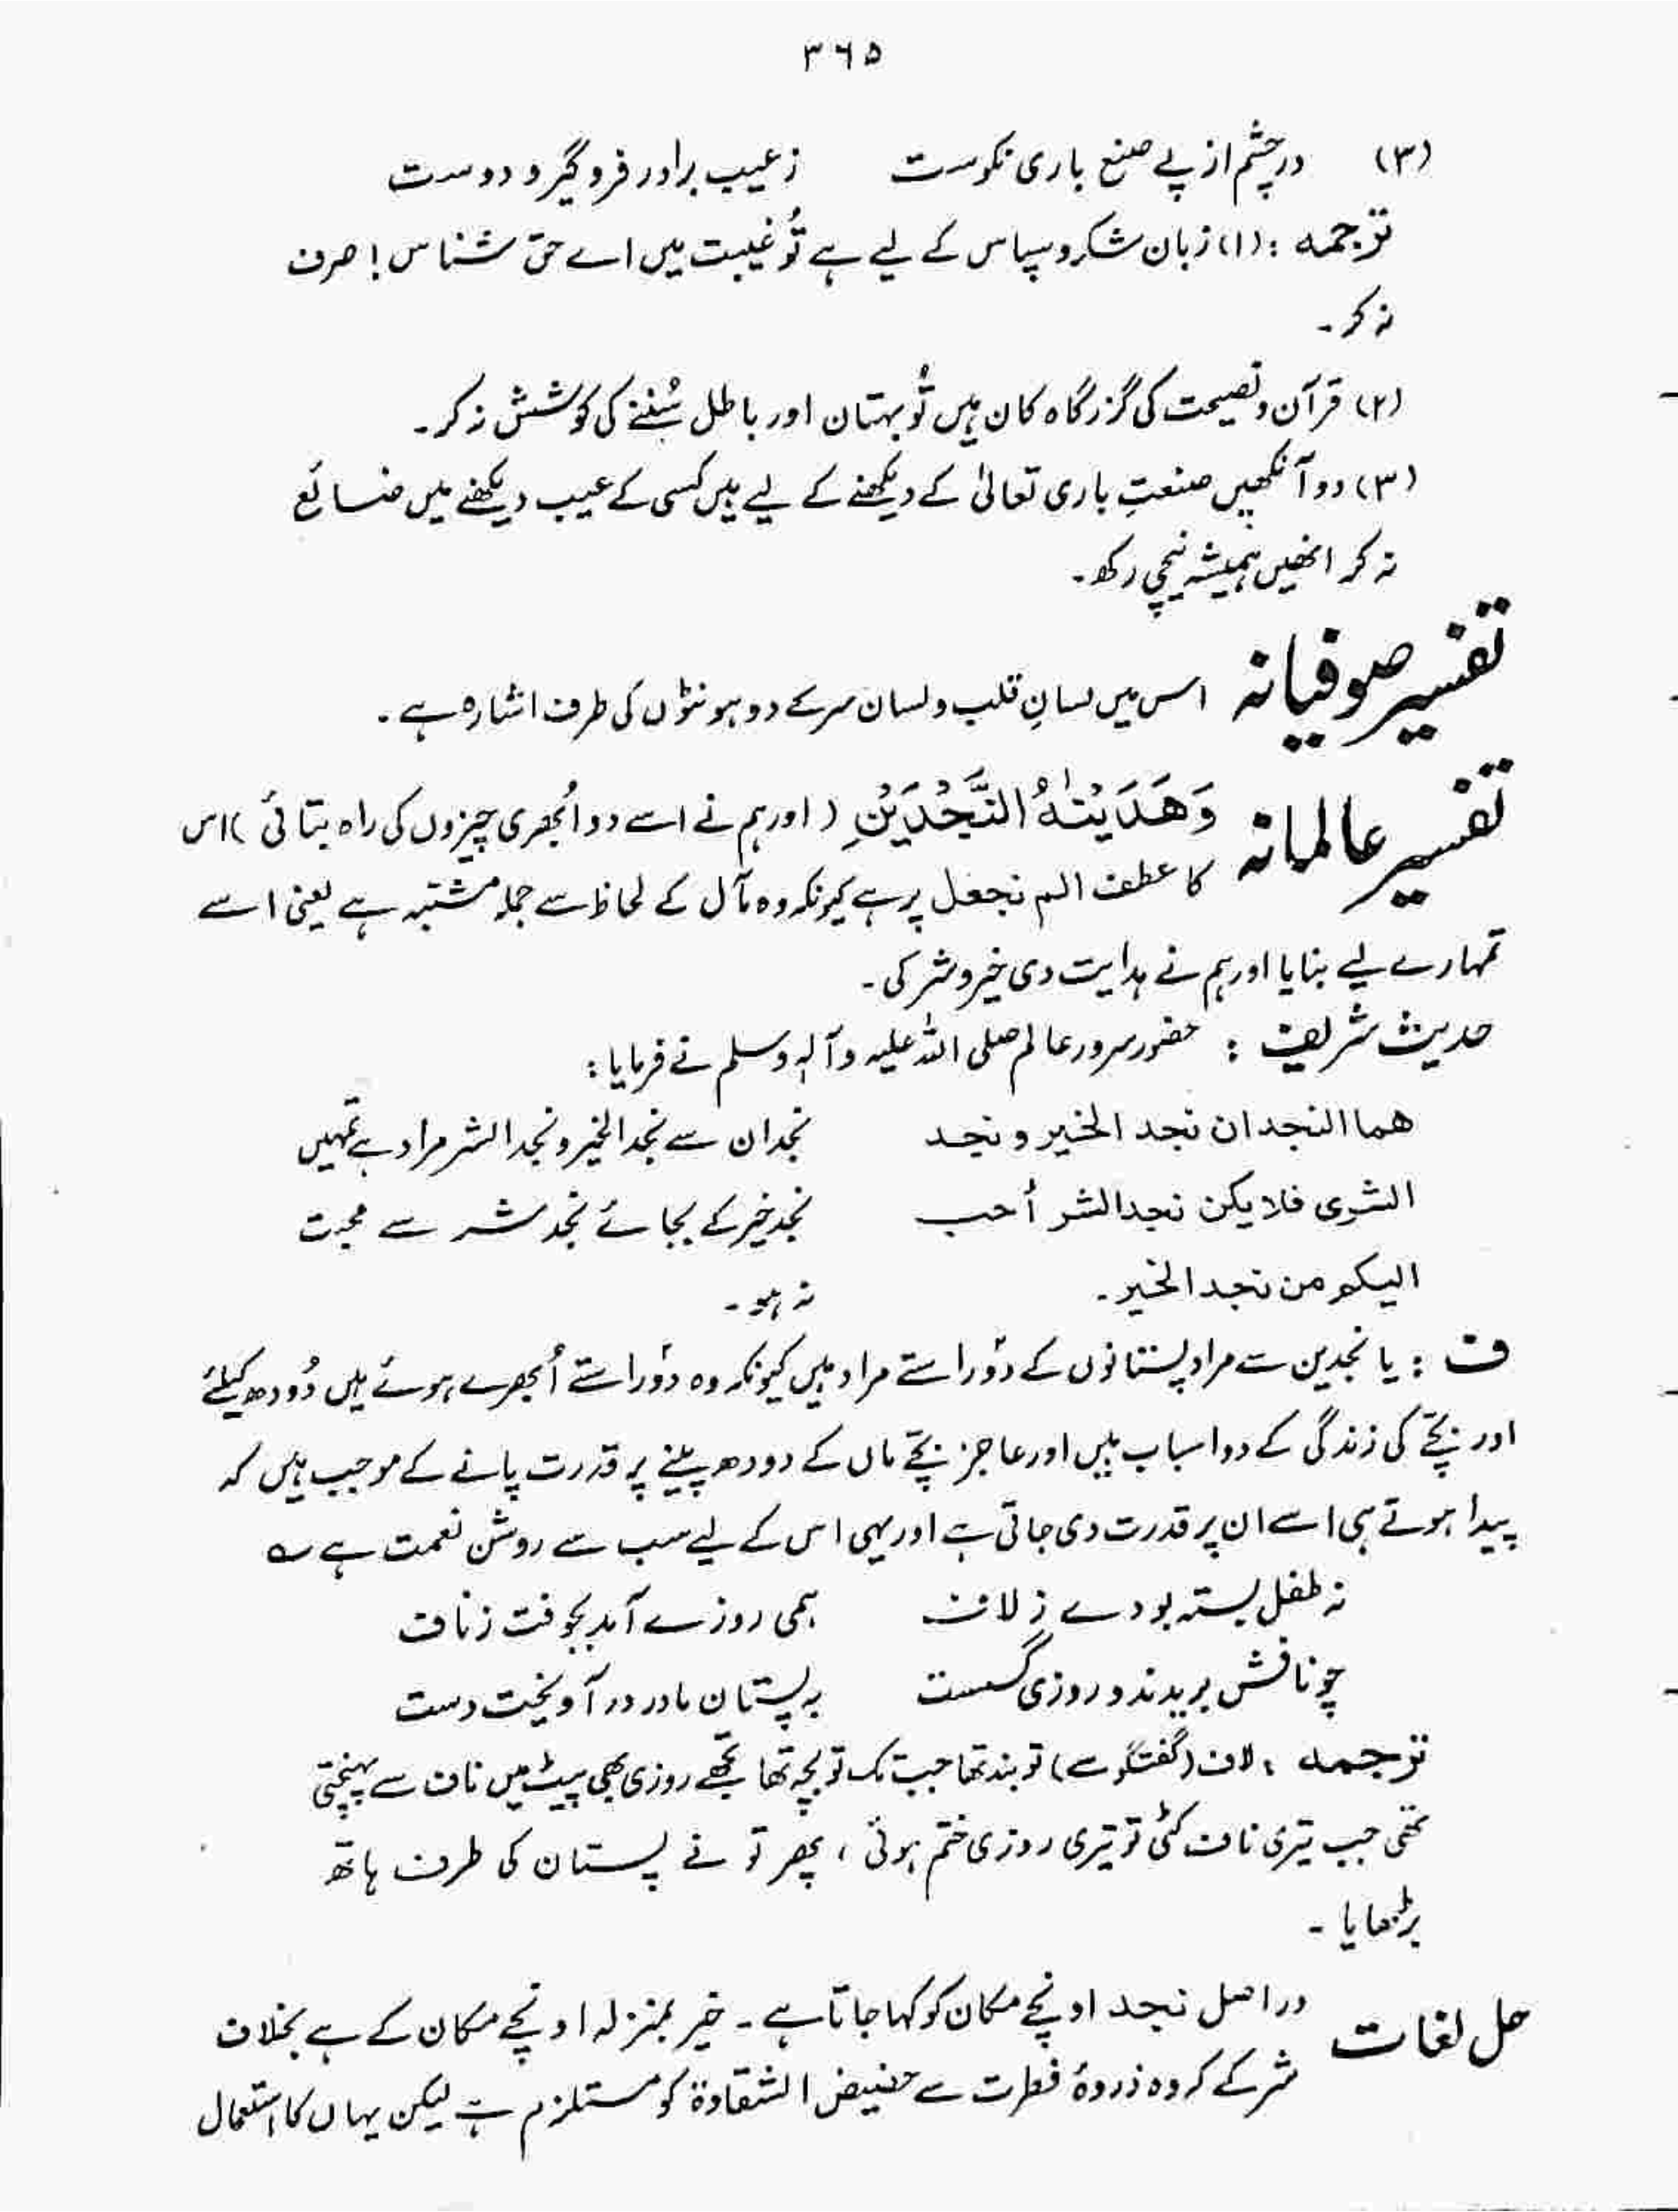 ۳۶۵
(۳) درچشم از پے صنع باری نکوست ز عیب برادر فروگیر و دوست
ترجمہ : (۱) زبان شکر و سپاس کے لیے ہے تُو غیبت میں اے حق شناس ! صرف
نہ کر ۔
(۲) قرآن و نصیحت کی گزرگاہ کان ہیں تُو بہتان اور باطل سُننے کی کوشش نہ کر ۔
(۳) دو آنکھیں صنعتِ باری تعالیٰ کے دیکھنے کے لیے ہیں کسی کے عیب دیکھنے میں ضائع
نہ کر انھیں ہمیشہ نیچی رکھ ۔
تفسیر صوفیانہ اس میں لسانِ قلب و لسان سر کے دو ہونٹوں کی طرف اشارہ ہے ۔
تفسیر عالمانہ وَهَدَيْنٰهُ النَّجْدَيْنِ ( اور ہم نے اسے دو اُبھری چیزوں کی راہ بتائی ) اس
کا عطف الم نجعل پر ہے کیونکہ وہ مآل کے لحاظ سے جملہ مثبتہ ہے یعنی اسے
تمہارے لیے بنایا اور ہم نے ہدایت دی خیر و شر کی ۔
حدیث شریف : حضور سرور عالم صلی اللہ علیہ وآلہٖ وسلم نے فرمایا :
هما النجدان نجد الخير و نجد نجدان سے نجد الخیر و نجد الشر مراد ہے تمہیں
الشرى فلا يكن نجد الشر أحب نجد خیر کے بجائے نجد شر سے محبت
اليكم من نجد الخير ۔ نہ ہو ۔
ف : یا نجدین سے مراد پستانوں کے دوؔ راستے مراد ہیں کیونکہ وہ دوؔ راستے اُبھرے ہوئے ہیں دُودھ کیلئے
اور بچے کی زندگی کے دو اسباب ہیں اور عاجز بچے ماں کے دودھ پینے پر قدرت پانے کے موجب ہیں کہ
پیدا ہوتے ہی اسے ان پر قدرت دی جاتی ہے اور یہی اس کے لیے سب سے روشن نعمت ہے ؎
نہ طفل بستہ بودے ز لاف ہمی روزے آمد بجوفت ز ناف
چو نافش بریدند و روزی گسست بہ پستان مادر در آویخت دست
ترجمہ : لاف (گفتگو سے) تو بند تھا جب تک تو بچہ تھا تجھے روزی بھی پیٹ میں ناف سے پہنچتی
تھی جب تیری ناف کٹی تو تیری روزی ختم ہوئی ، پھر تو نے پستان کی طرف ہاتھ
بڑھایا ۔
حل لغات دراصل نجد اونچے مکان کو کہا جاتا ہے ۔ خیر بمنزلہ اونچے مکان کے ہے بخلاف
شر کے کہ وہ ذروۂ فطرت سے حضیض الشقاوۃ کو مستلزم ہے لیکن یہاں کا استعمال